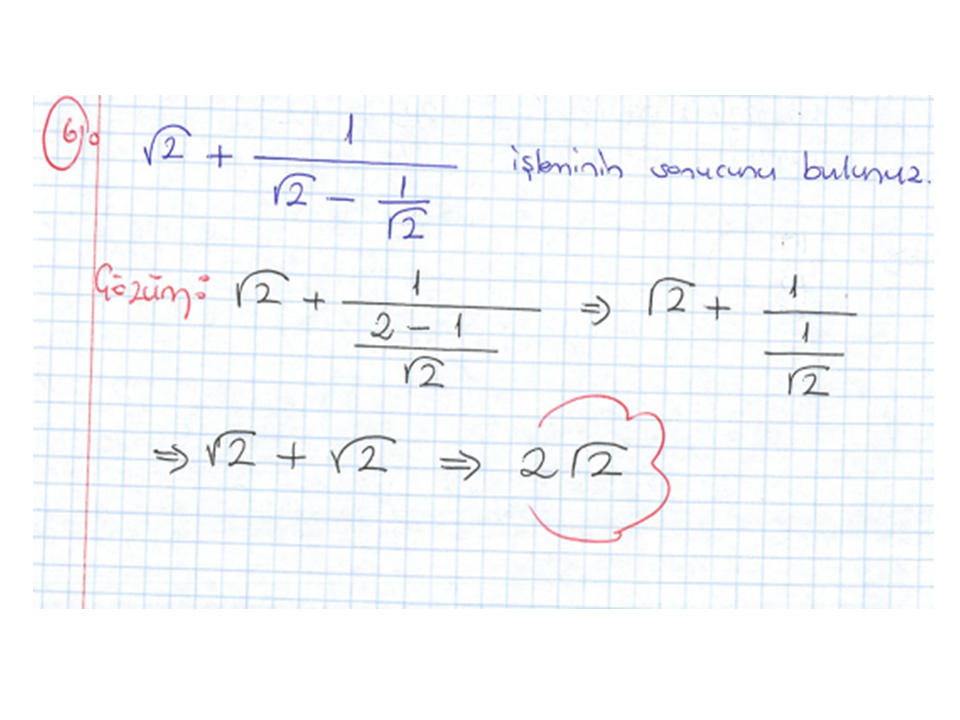 6). √2 + 1 / (√2 − 1/√2) işleminin sonucunu bulunuz.
Çözüm: √2 + 1 / ((2 − 1)/√2) ⇒ √2 + 1 / (1/√2)
⇒ √2 + √2 ⇒ 2√2